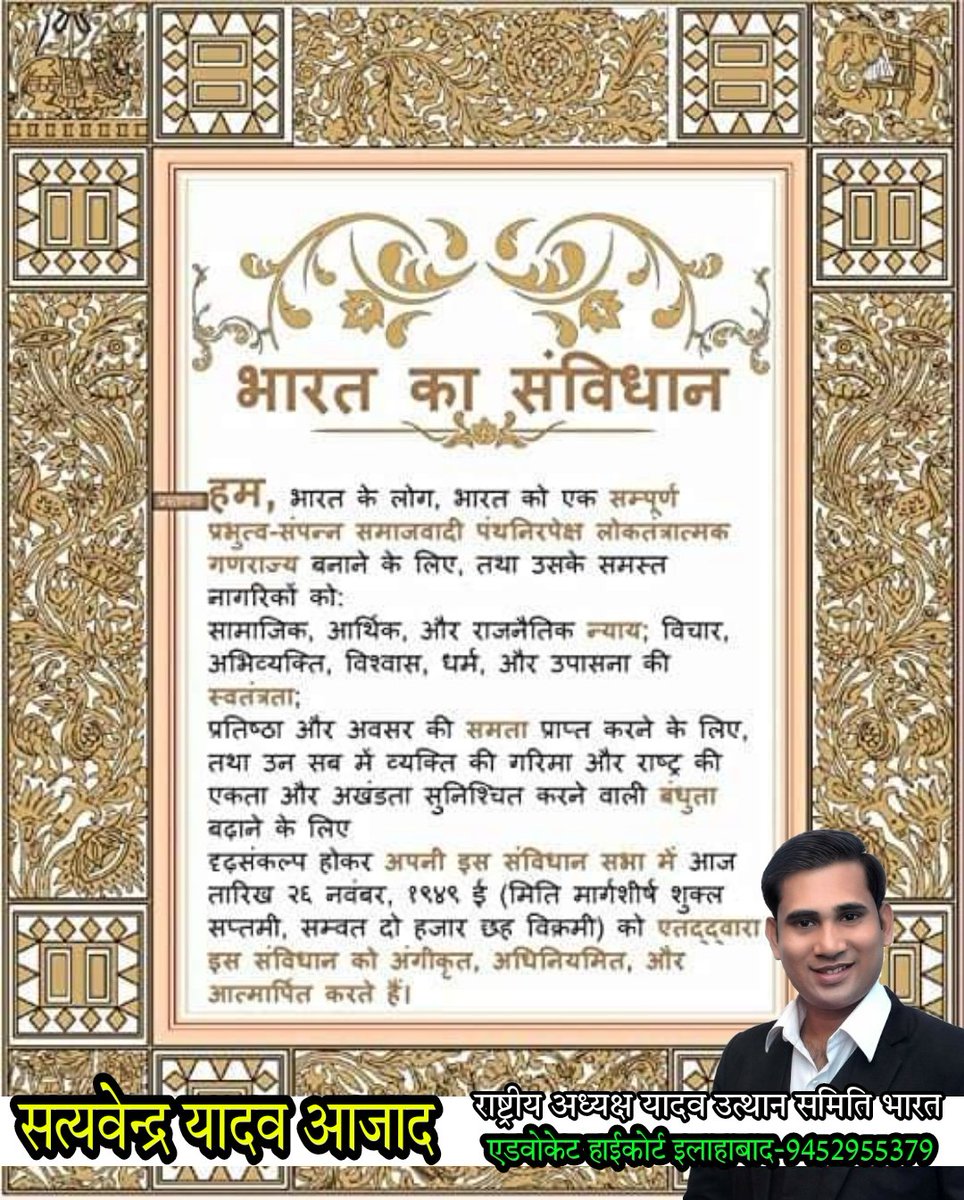 भारत का संविधान
हम, भारत के लोग, भारत को एक सम्पूर्ण
प्रभुत्व-संपन्न समाजवादी पंथनिरपेक्ष लोकतंत्रात्मक
गणराज्य बनाने के लिए, तथा उसके समस्त
नागरिकों को:
सामाजिक, आर्थिक, और राजनैतिक न्याय; विचार,
अभिव्यक्ति, विश्वास, धर्म, और उपासना की
स्वतंत्रता;
प्रतिष्ठा और अवसर की समता प्राप्त करने के लिए,
तथा उन सब में व्यक्ति की गरिमा और राष्ट्र की
एकता और अखंडता सुनिश्चित करने वाली बंधुता
बढ़ाने के लिए
दृढ़संकल्प होकर अपनी इस संविधान सभा में आज
तारिख २६ नवंबर, १९४९ ई (मिति मार्गशीर्ष शुक्ल
सप्तमी, सम्वत दो हजार छह विक्रमी) को एतद्द्वारा
इस संविधान को अंगीकृत, अधिनियमित, और
आत्मार्पित करते हैं।
सत्यवेन्द्र यादव आजाद
राष्ट्रीय अध्यक्ष यादव उत्थान समिति भारत
एडवोकेट हाईकोर्ट इलाहाबाद-9452955379